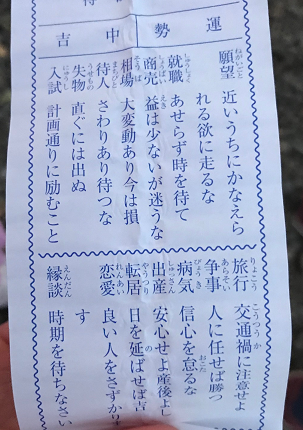 運勢 中吉
願望 近いうちにかなえら
れる欲に走るな
就職 あせらず時を待て
商売 益は少ないが迷うな
相場 大変動あり今は損
待人 さわりあり待つな
失物 直ぐには出ぬ
入試 計画通りに励むこと
旅行 交通禍に注意せよ
争事 人に任せば勝つ
病気 信心を怠るな
出産 安心せよ産後よし
転居 日を延ばせば吉
恋愛 良い人をさずか?
す
縁談 時期を待ちなさい